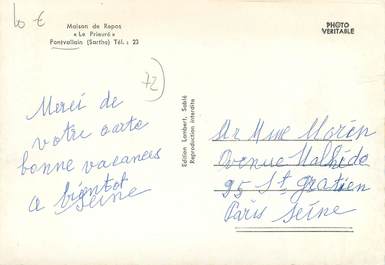 10 €
Maison de Repos
« Le Prieuré »
Pontvallain (Sarthe) Tél. : 23
PHOTO
VERITABLE
72
Merci de
votre carte
bonne vacances
a bientot
Seine
Edition Lambert, Sablé
Reproduction interdite
Mr Mme Morin
Avenue
95 St gratien
Paris Seine